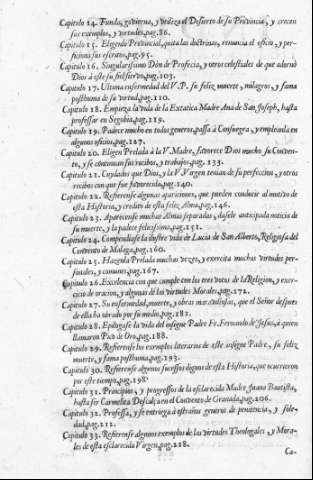 Capitulo 14. Funda, govierna, y vtiliza el Desierto de su Provincia, y crecen
sus exemplos, y virtudes, pag.86.
Capitulo 15. Eligenle Provincial, quita las doctrinas, renuncia el oficio, y per-
ficiona sus escritos, pag.95.
Capitulo 16. Singularissimo Dón de Profecia, y otros celestiales de que adornó
Dios à este su fiel siervo, pag.103.
Capitulo 17. Vltima enfermedad del V.P. su feliz muerte, milagros, y fama
posthuma de su virtud, pag.110.
Capitulo 18. Empieza la vida de la Extatica Madre Ana de San Joseph, hasta
professar en Segobia, pag.119.
Capitulo 19. Padece mucho en todos generos, passa à Consuegra, y empleanla en
algunos oficios, pag.127.
Capitulo 20. Eligen Prelada à la V. Madre, favorece Dios mucho su Conven-
to, y se continuan sus recibos, y trabajos, pag.133.
Capitulo 21. Cuydados que Dios, y la V. Virgen tenian de su perfeccion, y otros
recibos con que fue favorecida, pag.140.
Capitulo 22. Refierense algunas apariciones, que pueden conducir al motivo de
esta Historia, y credito de esta feliz Alma, pag.146.
Capitulo 23. Aparecense muchas Almas separadas, dasele anticipada noticia de
su muerte, y la padece felicissima, pag.151.
Capitulo 24. Compendiase la ilustre vida de Lucia de San Alberto, Religiosa del
Convento de Malaga, pag.160.
Capitulo 25. Hazenla Prelada muchas vezes, y exercita muchas virtudes per-
sonales, y comunes, pag.167.
Capitulo 26. Excelencia con que cumple con los tres votos de la Religion, y exer-
cicio de oracion, y algunas de las virtudes Morales, pag.172.
Capitulo 27. Su enfermedad, muerte, y obras maravillosas, que el Señor despues
de ella ha obrado por su medio, pag.181.
Capitulo 28. Epilogase la vida del insigne Padre Fr. Fernando de Jesus, à quien
llamaron Pico de Oro, pag.188.
Capitulo 29. Refierense los exemplos literarios de este insigne Padre, su feliz
muerte, y fama posthuma, pag.193.
Capitulo 30. Refierense algunos sucessos dignos de esta Historia, que ocurrieron
por este tiempo, pag.198.
Capitulo 31. Principios, y progressos de la esclarecida Madre Juana Bautista,
hasta ser Carmelita Descalça en el Convento de Granada, pag.206.
Capitulo 32. Professa, y se entrega à estraños generos de penitencia, y sole-
dad, pag.212.
Capitulo 33. Refierense algunos exemplos de las virtudes Theologales, y Mora-
les de esta esclarecida Virgen, pag.218.
Ca-